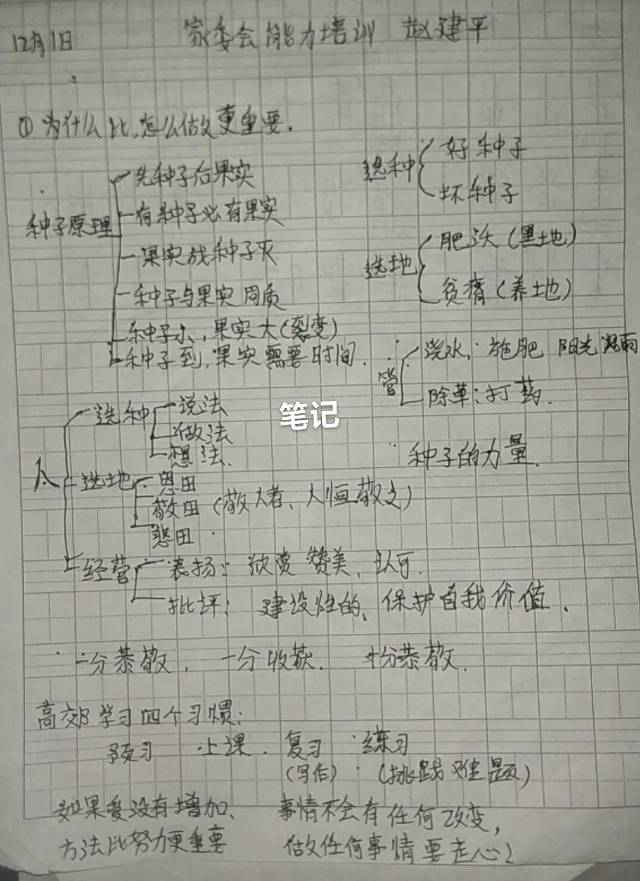 12月1日 家委会能力培训 赵建平
①为什么比,怎么做更重要.
种子原理
先种子后果实
有种子必有果实
果实成种子灭
种子与果实同质
种子小,果实大(裂变)
种子到,果实需要时间.
选种
好种子
坏种子
选地
肥沃(黑地)
贫瘠(养地)
管
浇水:施肥 阳光 雨
除草:打药.
种子的力量.
笔记
人
选种
说法
做法
想法.
选地
恩田
敬田(敬人者、人恒敬之)
悲田
经营
表扬: 欣赏 赞美,认可.
批评: 建设性的、保护自我价值.
一分恭敬, 一分收获. 十分恭敬.
高效学习四个习惯:
预习 上课. 复习 练习
(写作) (挑战难题)
如果爱没有增加、 事情不会有任何改变,
方法比努力更重要 做任何事情要走心